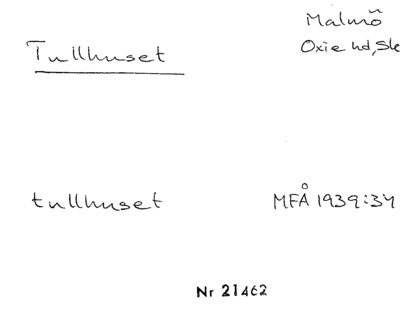 Malmö
Tullhuset
Oxie hd, Sk
tullhuset
MFÅ 1939:34
Nr 21462